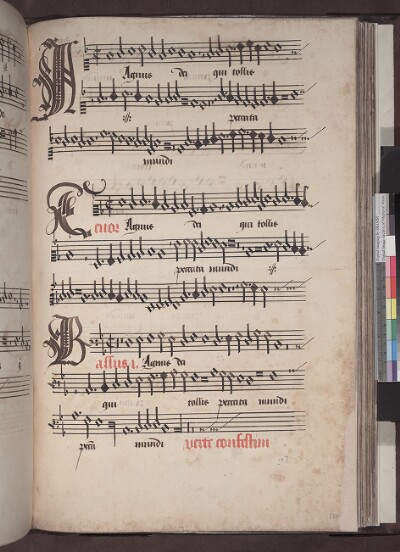 Agnus dei qui tollis
:ij: peccata
mundi
Tenor Agnus dei qui tollis
peccata mundi :ij:
Bassus 1. Agnus dei
qui tollis peccata mundi
mundi verte confestim